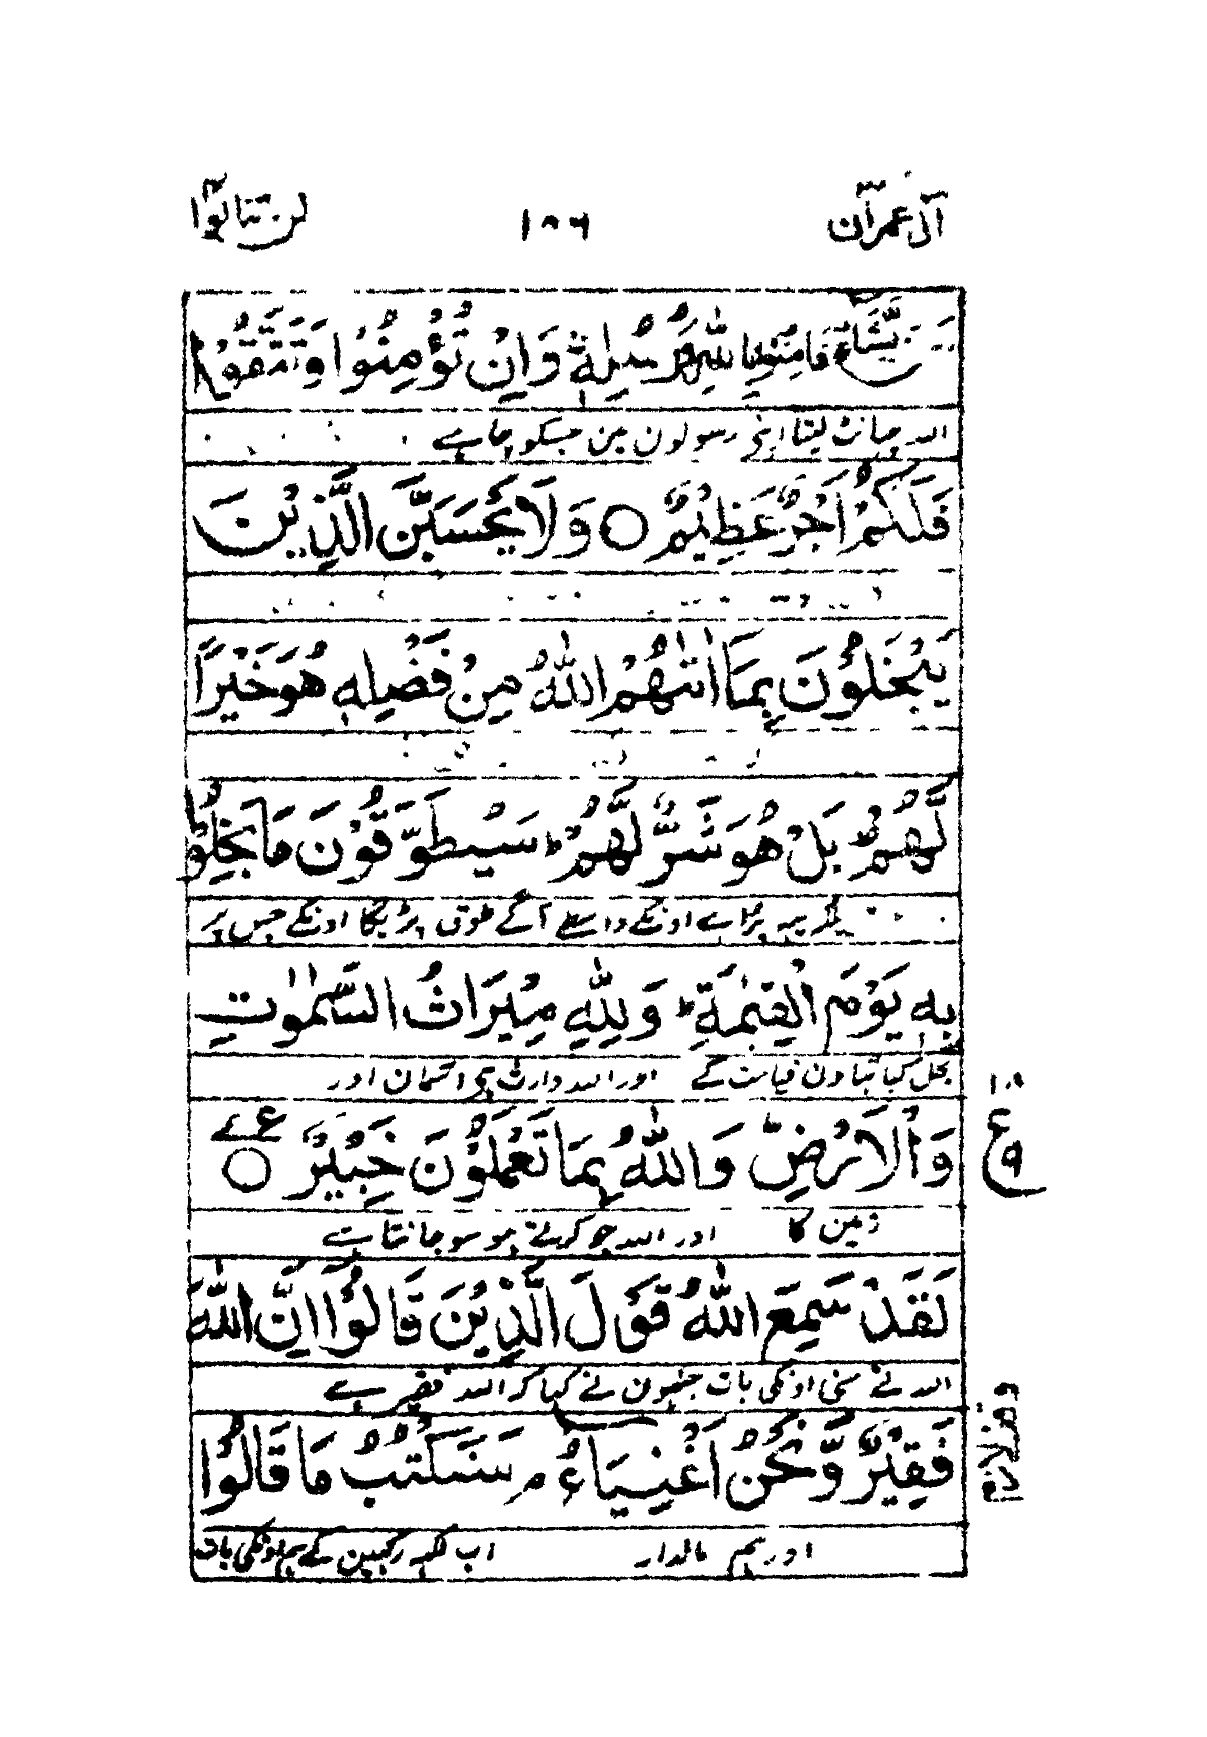 آل عمرٰن ۱۸۶ لن تنالوا
يَّشَآءُ فَاٰمِنُوْا بِاللّٰهِ وَرُسُلِهٖ وَاِنْ تُؤْمِنُوْا وَتَتَّقُوْا
اللہ چھانٹ لیتا اپنی رسولون مین جسکو چاہے
فَلَكُمْ اَجْرٌ عَظِيْمٌ ○ وَلَا يَحْسَبَنَّ الَّذِيْنَ
يَبْخَلُوْنَ بِمَآ اٰتٰىهُمُ اللّٰهُ مِنْ فَضْلِهٖ هُوَ خَيْرًا
لَّهُمْ ط بَلْ هُوَ شَرٌّ لَّهُمْ ط سَيُطَوَّقُوْنَ مَا بَخِلُوْا
یہ برا ہے اونکے واسطے آگے طوق پڑیگا اونکے جس پر
بِهٖ يَوْمَ الْقِيٰمَةِ ط وَلِلّٰهِ مِيْرَاثُ السَّمٰوٰتِ
بخل کیا تھا دن قیامت کے اور اللہ وارث ہی آسمان اور
وَالْاَرْضِ ط وَاللّٰهُ بِمَا تَعْمَلُوْنَ خَبِيْرٌ ○ ع
ع ۹
زمین کا اور اللہ جو کرتے ہو سو جانتا ہے
لَقَدْ سَمِعَ اللّٰهُ قَوْلَ الَّذِيْنَ قَالُوْٓا اِنَّ اللّٰهَ
اللہ نے سنی اونکی بات جنہون نے کہا کہ اللہ فقیر ہے
فَقِيْرٌ وَّنَحْنُ اَغْنِيَآءُ م سَنَكْتُبُ مَا قَالُوْا
وقف لازم
اور ہم مالدار اب لکھہ رکہین گے ہم اونکی بات